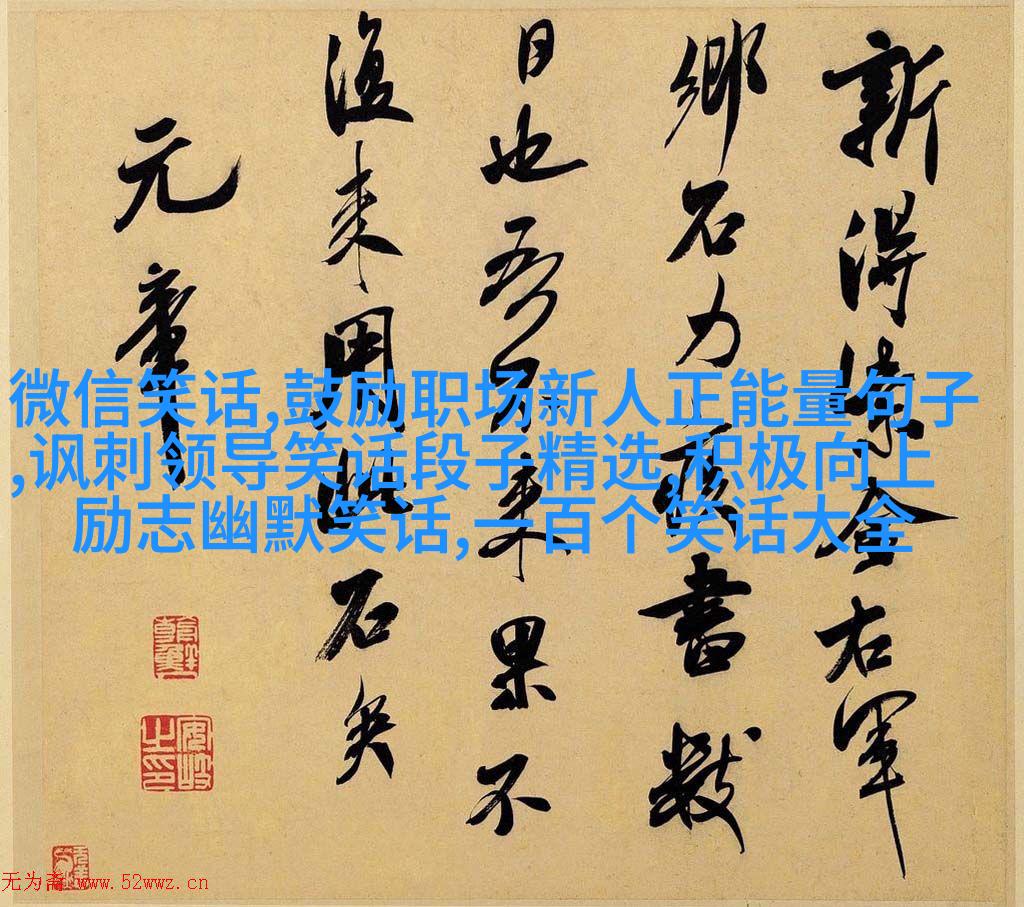 新得紫金右軍
鄉石力疾書數
日也吾不來果不
復來用此石矣
元章
微信笑话,鼓励职场新人正能量句子
,讽刺领导笑话段子精选,积极向上
励志幽默笑话,一百个笑话大全
无为斋 www.52wwz.cn